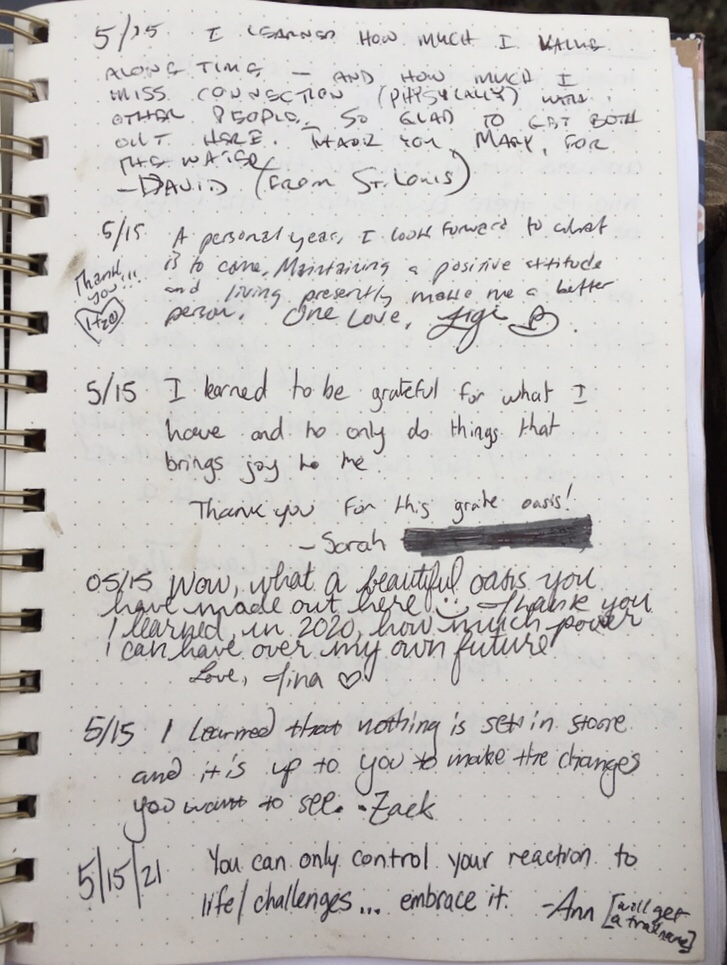 5/15 I LEARNED HOW MUCH I VALUE
ALONE TIME – AND HOW MUCH I
MISS CONNECTION (PHYSICALLY) WITH
OTHER PEOPLE. SO GLAD TO GET BOTH
OUT HERE. THANK YOU, MARK, FOR
THE WATER
–DAVID (FROM ST. LOUIS)
5/15 A personal year, I look forward to what
is to come. Maintaining a positive attitude
and living presently make me a better
person. One Love,
Thank
you...
H2O
5/15 I learned to be grateful for what I
have and to only do things that
brings joy to me.
Thank you for this grate oasis!
–Sarah
05/15 Wow, what a beautiful oasis you
have made out here :) Thank you
I learned, in 2020, how much power
I can have over my own future
Love, Tina ♡
5/15 I learned that nothing is set in stone
and it is up to you to make the changes
you want to see. -Zack
5/15/21 You can only control your reaction to
life/challenges... embrace it. -Ann [will get
a trail name]